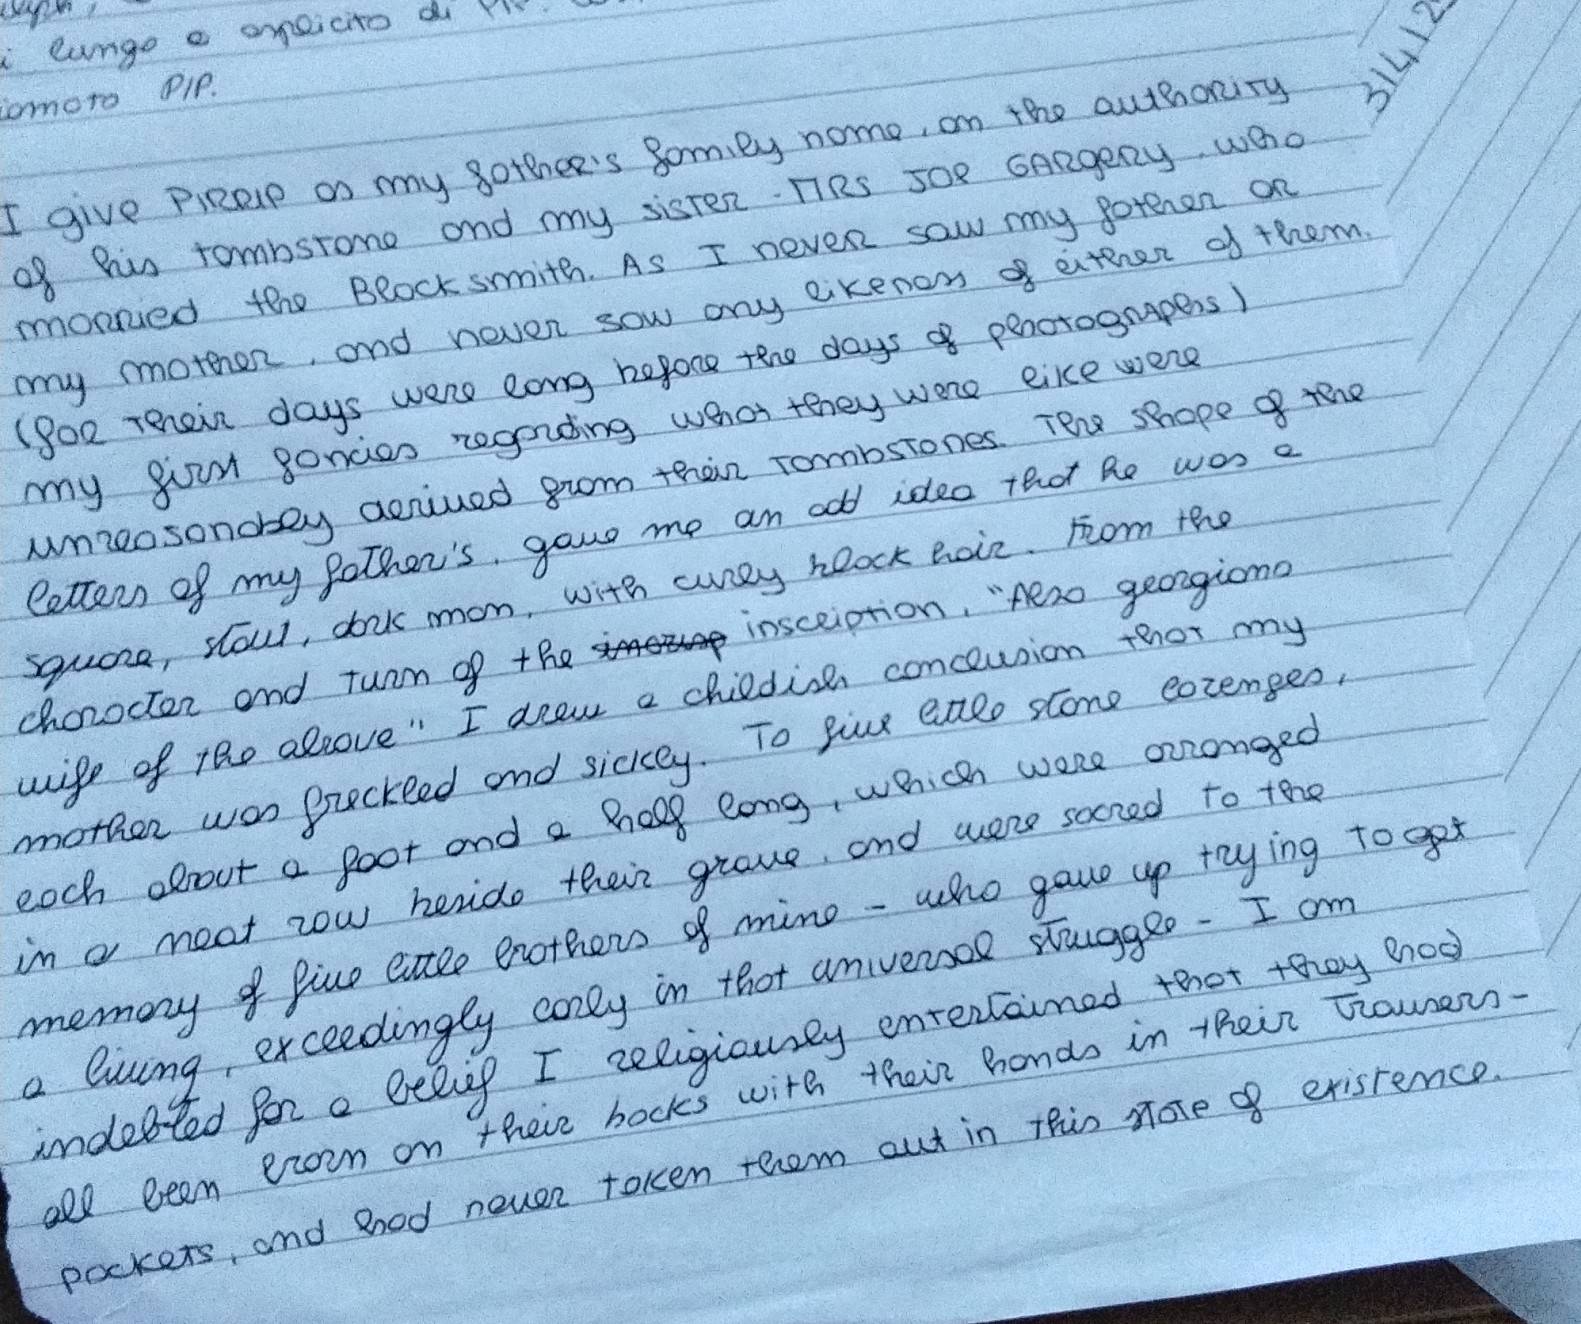 i lungo e explicito di PIP.
PIP.
31412
I give PIRRIP as my father's family name, on the authority
of his tombstone and my sister - MRS JOE GARgeRy. who
married the Blacksmith. As I never saw my father or
my mother, and never saw any likeness of either of them.
(for their days were long before the days of photographs)
my first fancies regarding what they were like were
unreasonably derived from their tombstones. The shape of the
letters of my father's, gave me an odd idea that he was a
square, stout, dark man, with curly black hair. From the
character and turn of the inscription, "Also georgiana
wife of the above" I drew a childish conclusion that my
mother was freckled and sickly. To five little stone lozenges,
each about a foot and a half long, which were arranged
in a neat row beside their grave, and were sacred to the
memory of five little brothers of mine - who gave up trying to get
a living, exceedingly early in that universal struggle - I am
indebted for a belief I religiously entertained that they had
all been born on their backs with their hands in their trousers-
pockets, and had never taken them out in this state of existence.